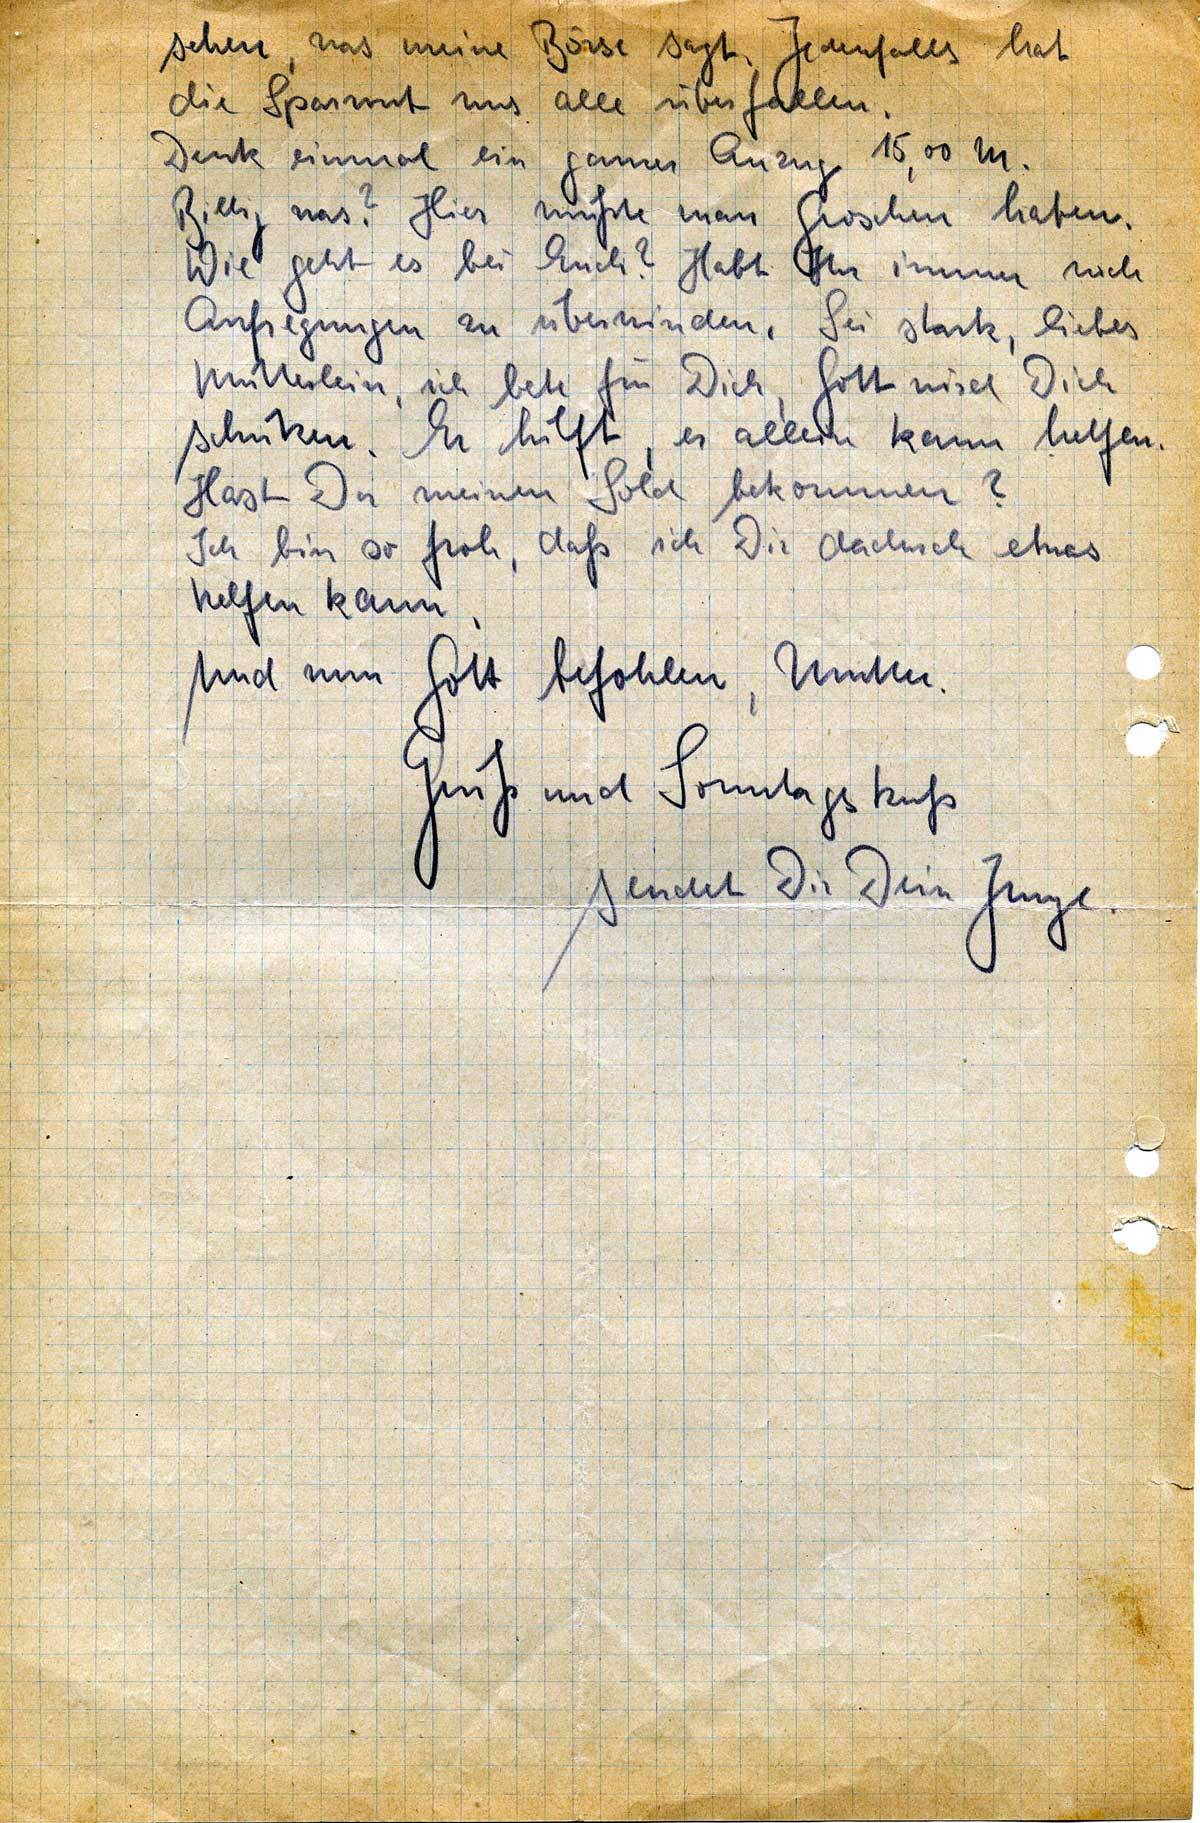 sehen, was meine Börse sagt. Jedenfalls hat
die Sparwut uns alle überfallen.
Denk einmal ein ganzer Anzug 15,00 M.
Billig was? Hier müßte man Groschen haben.
Wie geht es bei Euch? Habt Ihr immer noch
Aufregungen zu überwinden. Sei stark, liebes
Mütterlein, ich bete für Dich, Gott wird Dich
schützen. Er hilft, er allein kann helfen.
Hast Du meinen Sold bekommen?
Ich bin so froh, daß ich Dir dadurch etwas
helfen kann.
Und nun Gott befohlen, Mutter.
Gruß und Sonntagskuß
sendet Dir Dein Junge.